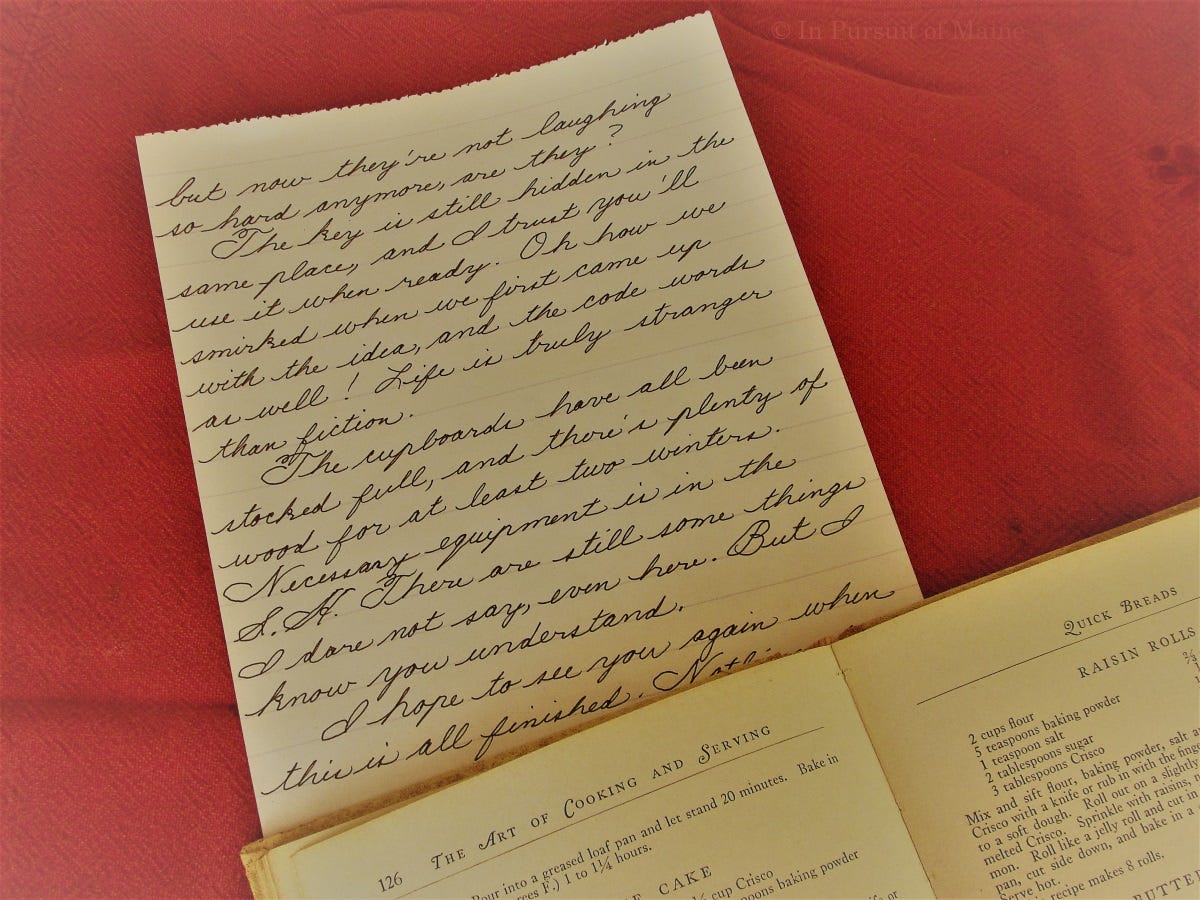 © In Pursuit of Maine
but now they're not laughing
so hard anymore, are they?
The key is still hidden in the
same place, and I trust you'll
use it when ready. Oh how we
smirked when we first came up
with the idea, and the code words
as well! Life is truly stranger
than fiction.
The cupboards have all been
stocked full, and there's plenty of
wood for at least two winters.
Necessary equipment is in the
S.H. There are still some things
I dare not say, even here. But I
know you understand.
I hope to see you again when
this is all finished.
126 THE ART OF COOKING AND SERVING
Pour into a greased loaf pan and let stand 20 minutes. Bake in
F.) 1 to 1¼ hours.
CAKE
cup Crisco
baking powder
or
QUICK BREADS
RAISIN ROLLS
2 cups flour
5 teaspoons baking powder
1 teaspoon salt
2 tablespoons sugar
3 tablespoons Crisco
⅔
Mix and sift flour, baking powder, salt
Crisco with a knife or rub in with the
to a soft dough. Roll out on a slightly
melted Crisco. Sprinkle with raisins,
mon. Roll like a jelly roll and cut in
pan, cut side down, and bake in a
Serve hot.
recipe makes 8 rolls.